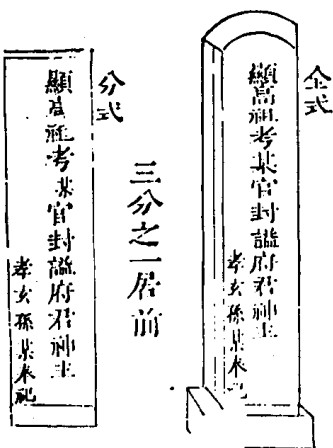 全式
顯高祖考某官封謚府君神主
孝玄孫某奉祀
三分之一居前
分式
顯高祖考某官封謚府君神主
孝玄孫某奉祀